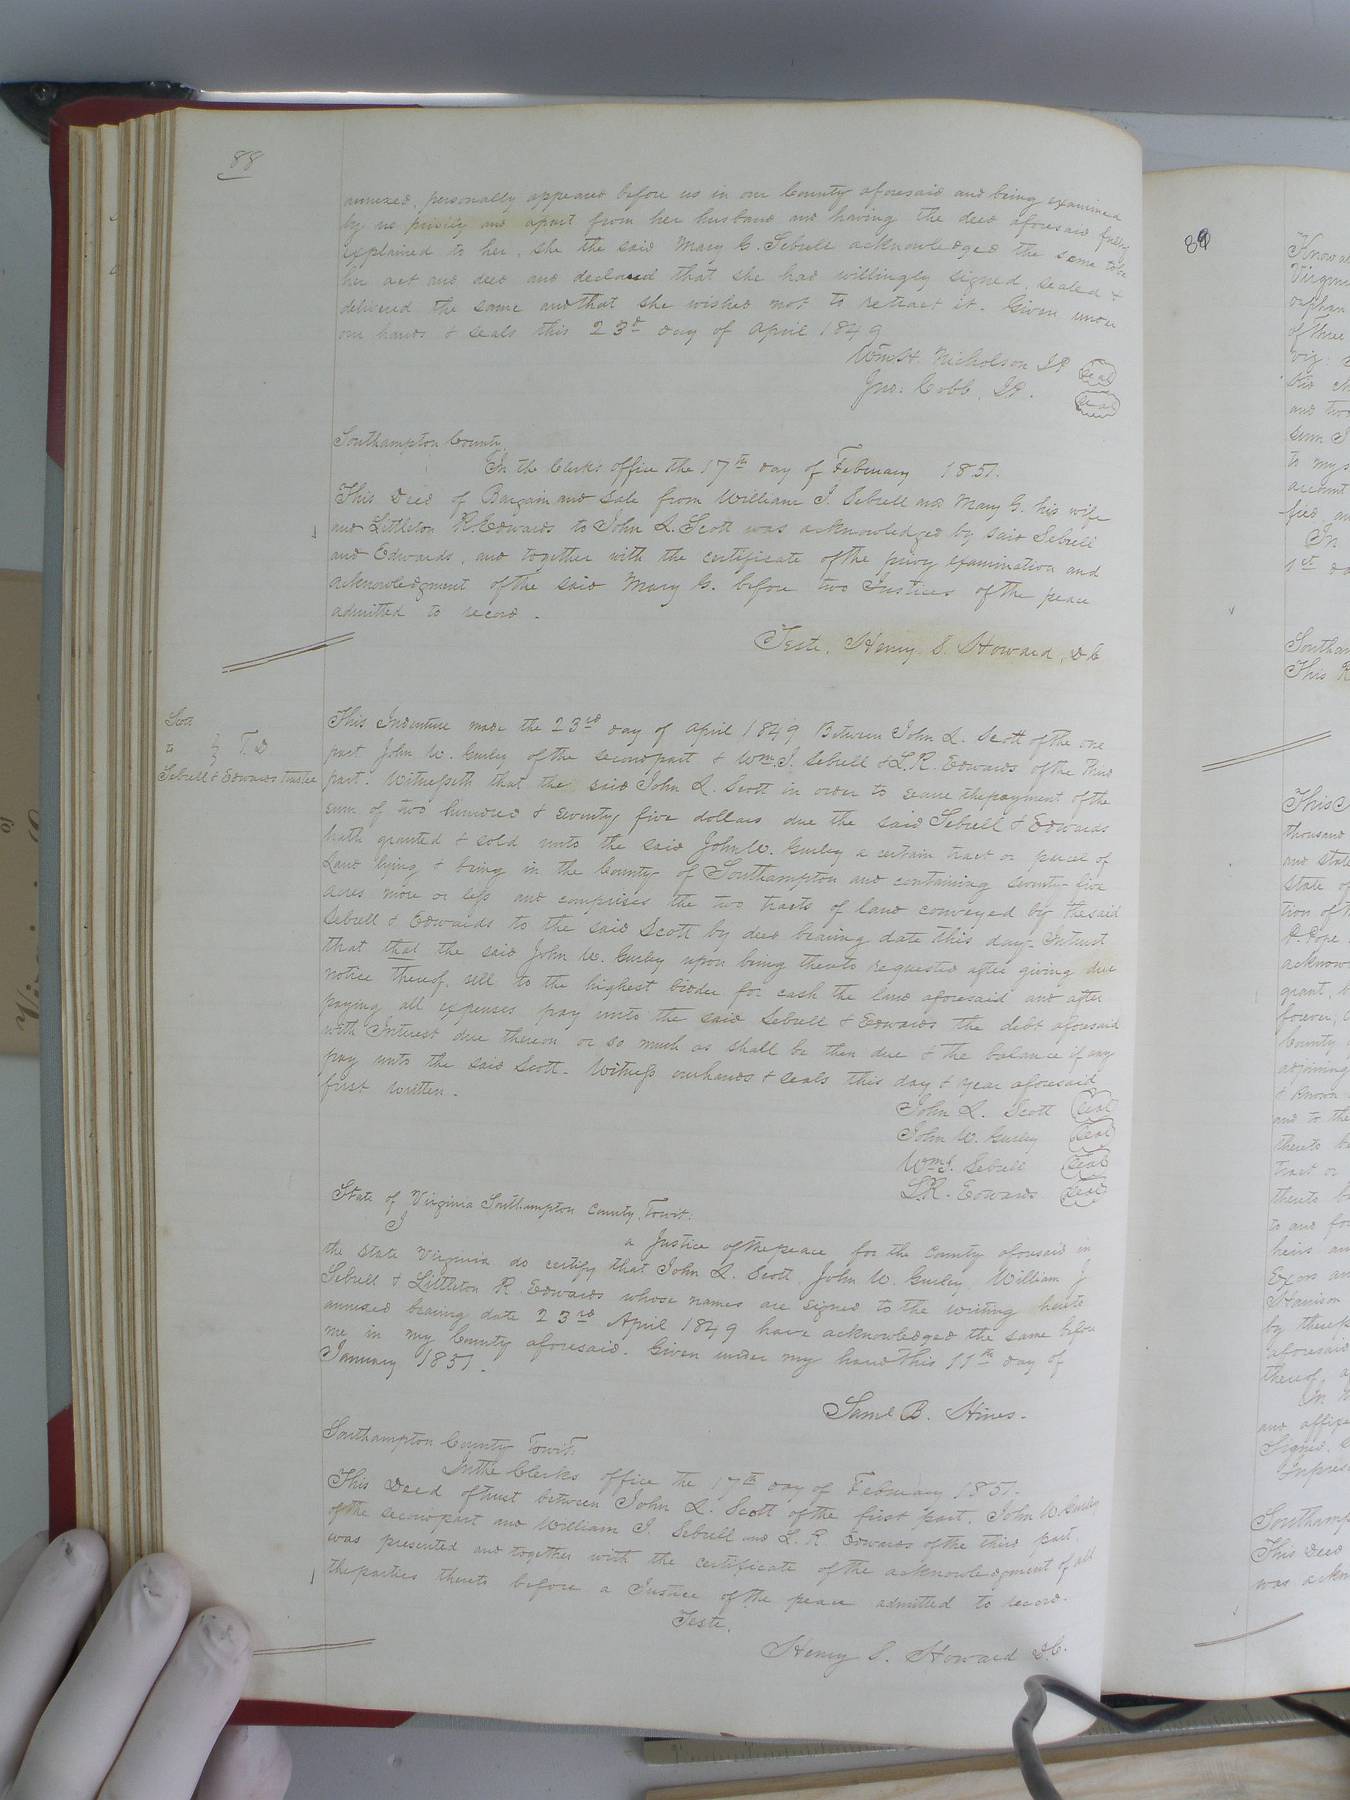 88
annexed, personally appeared before us in our County aforesaid and being examined
by us privily and apart from her husband and having the deed aforesaid fully
explained to her, she the said Mary G. Sebrell acknowledged the same to be
her act and deed and declared that she had willingly signed, sealed &
delivered the same and that she wished not to retract it. Given under
our hands & seals this 23d day of April 1849
Wm. H. Nicholson JP seal
Jno: Cobb, JP. seal
Southampton County,
In the Clerks office the 17th day of February 1851.
This Deed of Bargain and sale from William J. Sebrell and Mary G. his wife
and Littleton R. Edwards to John L. Scott was acknowledged by said Sebrell
and Edwards, and together with the certificate of the privy examination and
acknowledgment of the said Mary G. before two Justices of the peace
admitted to record.
Teste, Henry S. Howard, D C
Scott
to } T. D
Sebrell & Edwards trustee
This Indenture made the 23rd day of April 1849 Between John L. Scott of the one
part John W. Gurley of the second part & Wm. J. Sebrell & L. R. Edwards of the third
part. Witnesseth that the said John L. Scott in order to secure the payment of the
sum of two hundred & seventy five dollars due the said Sebrell & Edwards
hath granted & sold unto the said John W. Gurley a certain tract or parcel of
Land lying & being in the County of Southampton and containing seventy-five
acres more or less and comprises the two tracts of land conveyed by the said
Sebrell & Edwards to the said Scott by deed bearing date this day. Intrust
that that the said John W. Gurley upon being thereto requested after giving due
notice thereof, sell to the highest bidder for cash the land aforesaid and after
paying all expenses pay unto the said Sebrell & Edwards the debt aforesaid
with Interest due thereon or so much as shall be then due & the balance if any
pay unto the said Scott. Witness our hands & seals this day & year aforesaid
first written.
John L. Scott seal
John W. Gurley seal
Wm. J. Sebrell seal
L. R. Edwards seal
State of Virginia Southampton County, Towit:
I a Justice of the peace for the County aforesaid in
the State Virginia do certify that John L. Scott, John W. Gurley, William J
Sebrell & Littleton R. Edwards whose names are signed to the writing hereto
annexed bearing date 23rd April 1849 have acknowledged the same before
me in my County aforesaid. Given under my hand this 11th day of
January 1851.
Saml B. Hines.
Southampton County Towit:
In the Clerks office the 17th day of February 1851.
This Deed of trust between John L. Scott of the first part, John W Gurley
of the second part and William J. Sebrell and L. R. Edwards of the third part,
was presented and together with the certificate of the acknowledgment of all
the parties thereto before a Justice of the peace admitted to record.
Teste,
Henry S. Howard D.C.
89
Know a
Virgin
orphan
of three
viz:
and two
sum
to my s
account
fied an
In
1st da
Southam
This
This
thousand
and state
State of
tion of
P. Pope
acknow
grant, b
forever,
County
adjoining
& known
and to the
thereto be
tract or
thereto be
to and for
heirs an
Exors an
Harrison
by these p
aforesaid
thereof, a
In
and affixe
Signed,
Impres
Southamp
This Deed
was ackn